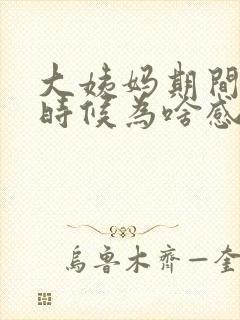 大姨妈期間
時候為啥感
烏魯木齊—奎